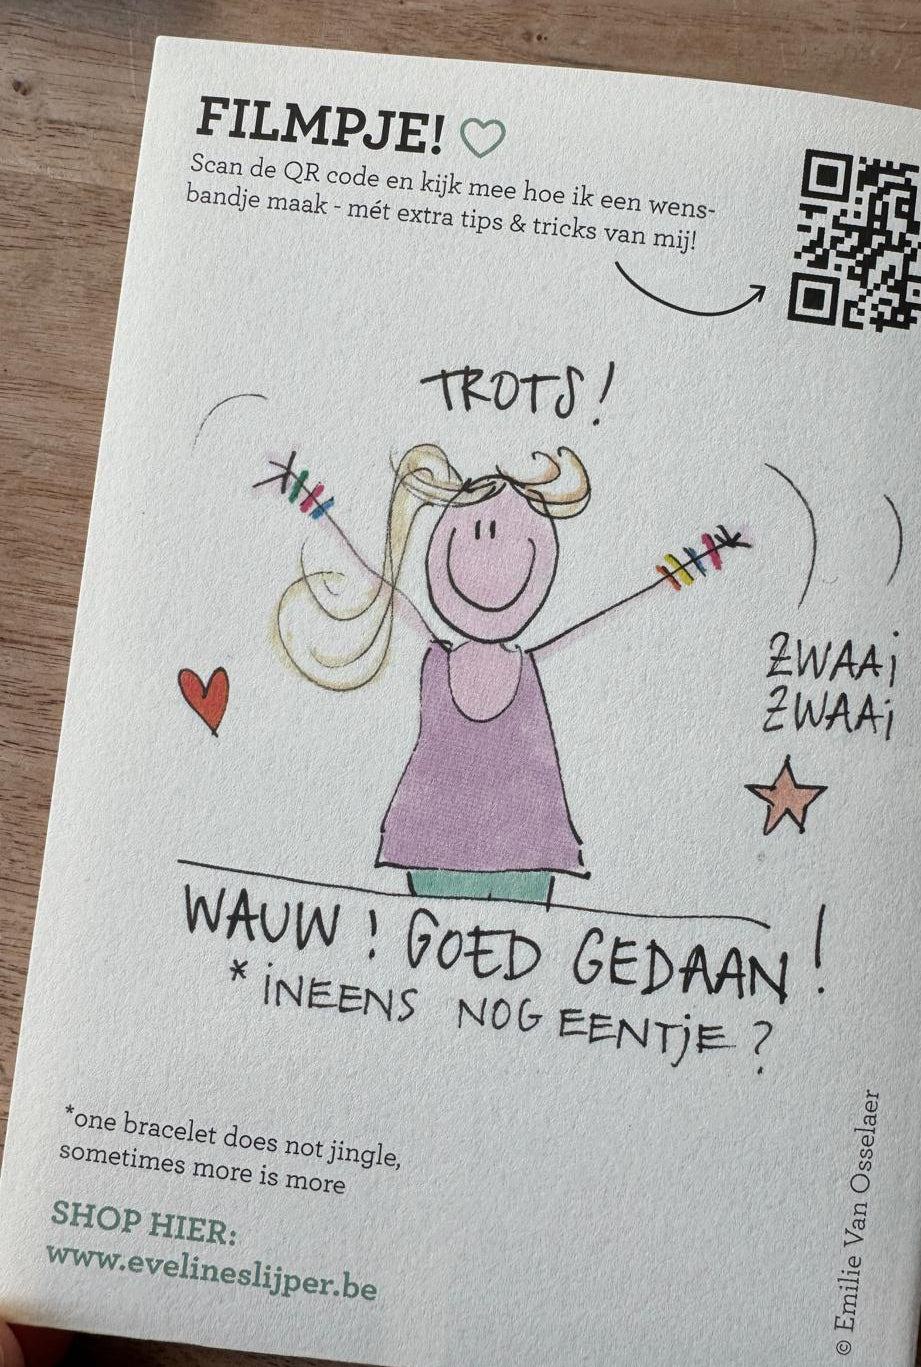 FILMPJE!
Scan de QR code en kijk mee hoe ik een wens-
bandje maak - mét extra tips & tricks van mij!
TROTS!
ZWAAi
ZWAAi
WAUW! GOED GEDAAN!
* iNEENS NOG EENTjE?
*one bracelet does not jingle,
sometimes more is more
SHOP HIER:
www.evelineslijper.be
© Emilie Van Osselaer